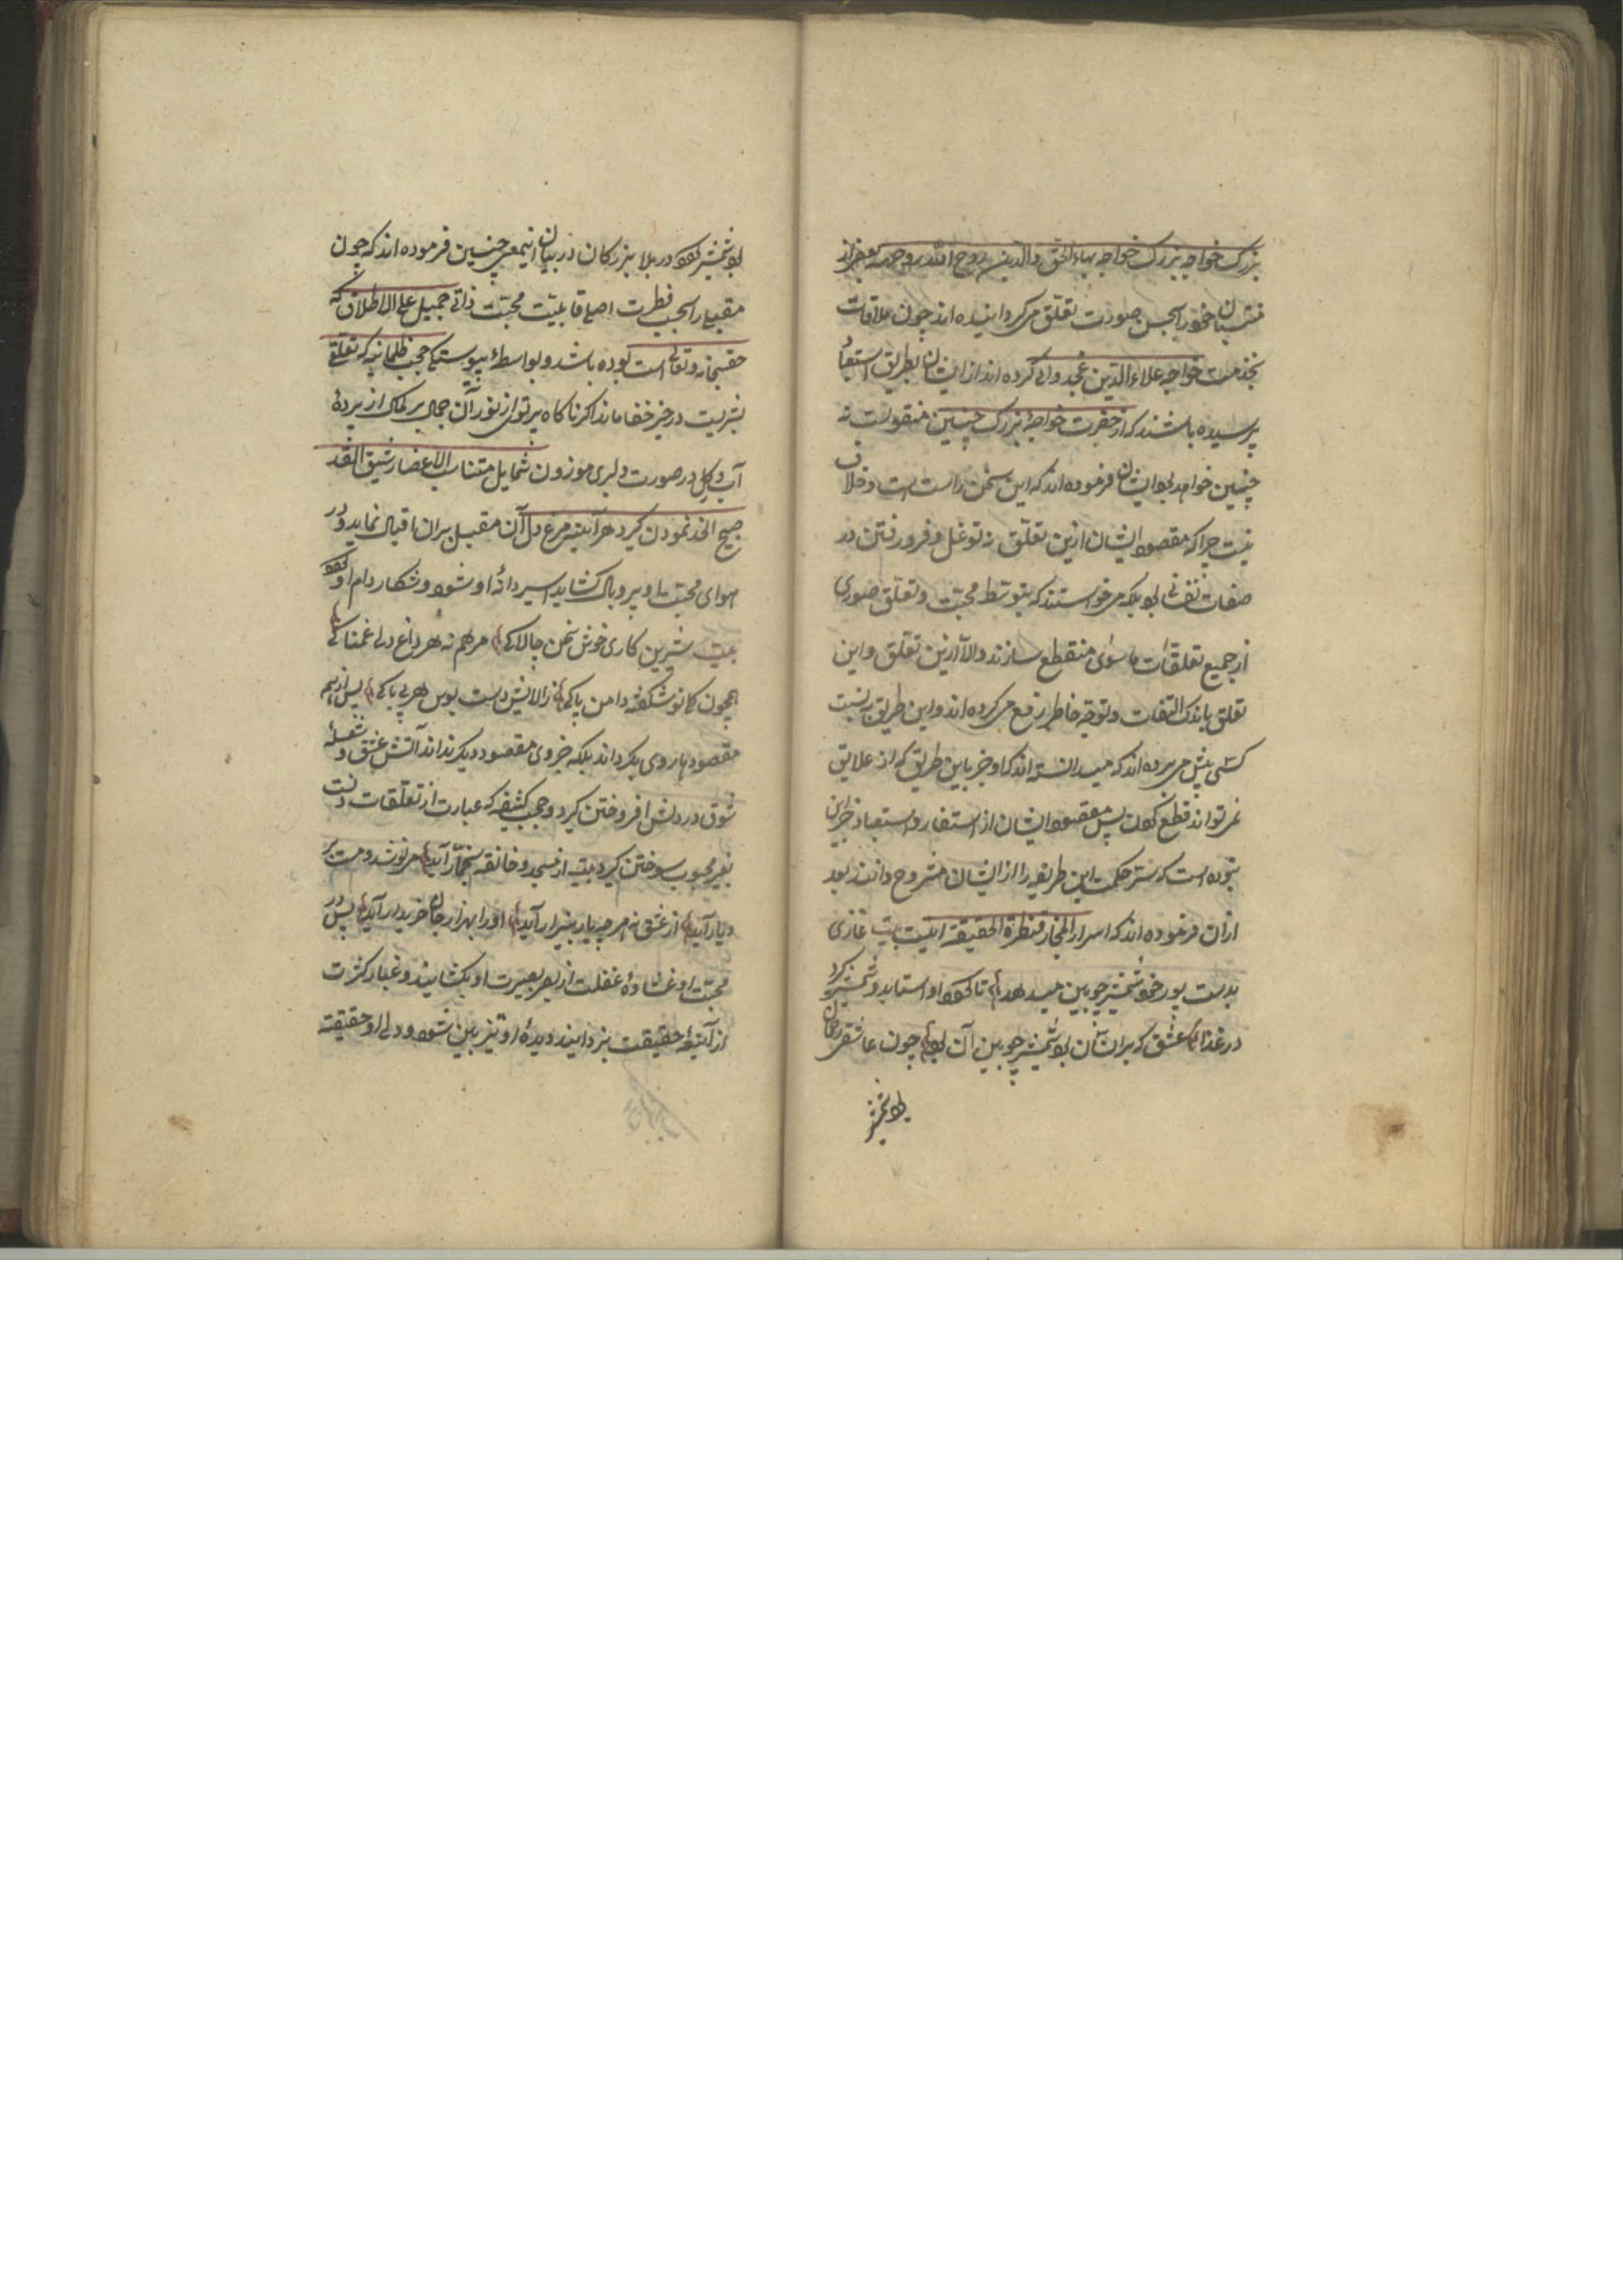 بزرک خواجه بزرک خواجه بهاء الحق والدین روح الله روحه بعضی از
منتسبان خود را بحسن صورت تعلق می کردانیده اند چون ملاقات
بخدمت خواجه علاءالدین غجدوانی کرده اند از ایشان بطریق استبعاد
پرسیده باشند که از حضرت خواجهٔ بزرک چنین منقولست نه
چنین خواهد بود ایشان فرموده اند که این سخن راست است و خلاف
نیست چرا که مقصود ایشان ازین تعلق نه توغل و فرو رفتن در
صفات نفسانی بود بلکه می خواستند که بتوسط محبت و تعلق صوری
از جمیع تعلقات ماسوی منقطع سازند والا ازین تعلق و این
تعلق باندک التفات و توجه خاطر رفع می کرده اند و این طریق به نسبت
کسی پیش می برده اند که میدانسته اند که او جز باین طریق که از علایق
نمی تواند قطع کردن پس مقصود ایشان از استفسار و استبعاد جز این
نبوده است که سر حکمت این طریقه را از ایشان مشروح دانند بعد
ازان فرموده اند که اسرار المجاز قنطرة الحقیقه اینست بیت غازی
بدست پور خود شمشیر چوبین میدهد تا که او استاد و شمشیر کرد
در غذا عشق که بر انسان بود شمشیر چوبین آن بود چون عاشقی رحمان
بود شمشیر
بود شمشیر کردد در بلا بزرکان در بیان اینمعنی چنین فرموده اند که چون
مقبلی را بحسب فطرت اصلی قابلیت محبت ذاتی جمیل علی الاطلاق که
حق سبحانه و تعالی است بوده باشد و بواسطهٔ پیوستکی حجب ظلمانیه که تعلقی
بشریت در حیز خفا ماند اکر ناکاه پرتوی از نور آن جمال بر کمال از پردهٔ
آب و کل در صورت دلبری موزون شمایل متناسب الاعضا رشیق القد
صبیح الخد نمودن کیرد هر آینه مرغ دل آن مقبل بران اقبال نماید و در
هوای محبت او پر و بال کشاید اسیر دانهٔ او شود و شکار دام او کردد
بیت شیرین کاری خوش سخن چالاکی مرهم نه هر داغ دل غمناکی
همچون کل نو شکفته دامن پاکی ز آلایش دست بوس هر بی باکی پس از همه
مقصودها روی بکرداند بلکه جز وی مقصود دیکر نداند آتش عشق و شعلهٔ
شوق در دلش افروختن کیرد و حجب کثیفه که عبارت از تعلقات دلست
بغیر محبوب سوختن کیرد بیت از مسجد و خانقه بخمار آید می نوشد و مست بر
در یار آید از عشق نه هر چه یار بیزار آید او را بهزار جان خریدار آید پس در
محبت او غشاوهٔ غفلت از بصر بصیرت او بکشایند و غبار کثرت
از آینهٔ حقیقت بزدایند دیدهٔ او تیز بین شود و دل او حقیقت